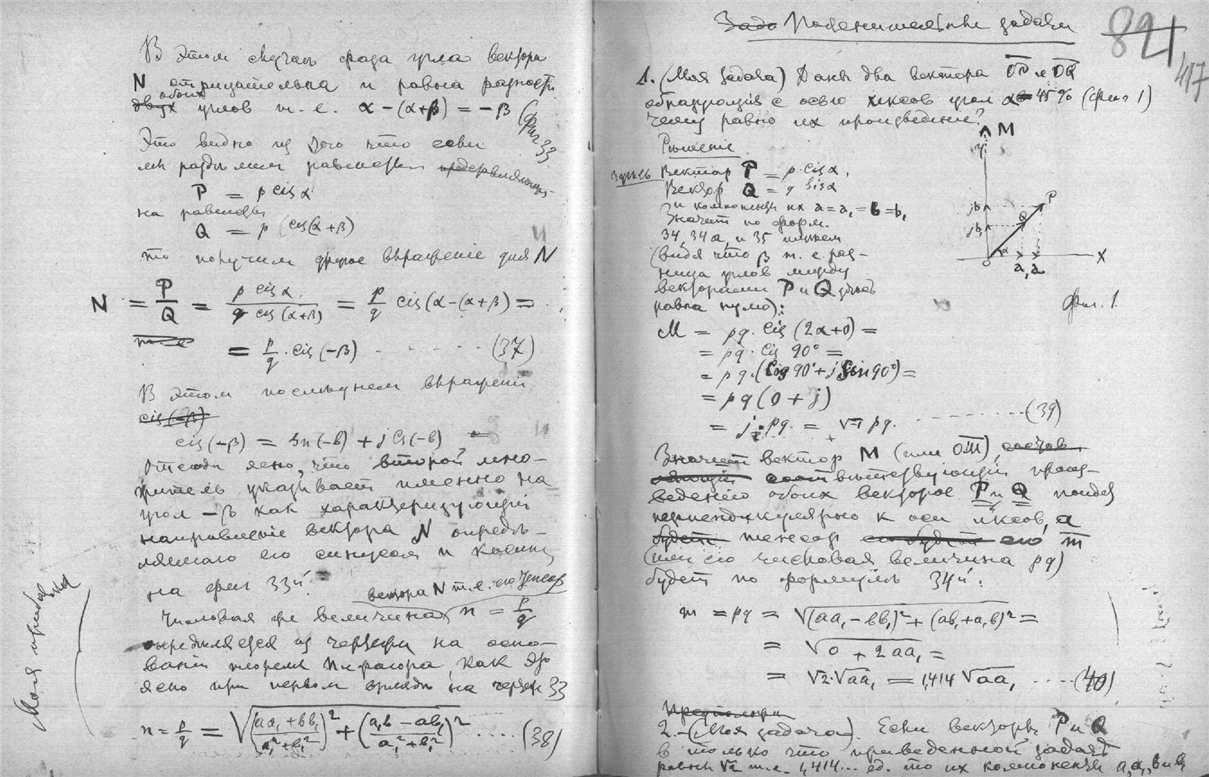 В этом случае фаза угла вектора
N отрицательна и равна разности
обоих углов т. е. α – (α+β) = –β (фиг 33
Это видно из того что если
мы разделим равенство
P = p cis α
на равенство
Q = p cis(α+β)
то получим другое выражение для N
N = P/Q = p cis α / q cis(α+β) = p/q cis(α–(α+β) =
= p/q · cis(–β) - - - - - (37)
В этом последнем выражении
cis(–β) = Sn(–b) + j Cs(–b)
Отсюда ясно, что второй мно-
житель указывает именно на
угол –β как характеризующий
направление вектора N опредѣ-
ляемаго его синусом и косин
на фиг 33й
вектора N т. е. его тензор
Числовая же величина n = p/q
определяется из чертежа на осно-
вании теоремы Пифагора, как это
ясно при первом взгляде на чертеж 33
n = p/q = √((aa₁+bb₁)/(a₁²+b₁²))² + ((a₁b – ab₁)/(a₁²+b₁²))² .... (38)
Моя
задачи
821
417
1. (Моя задача) Даны два вектора OP и OQ
образующие с осью иксов угол α = 45% (фиг 1)
чему равно их произведение?
Решение
Здесь Вектор P = p cis α,
Вектор Q = q cis α
и компоненты их a = a₁ = b = b₁
Значит по форм.
34, 34a, и 35 имеем
(видя что β т. е. раз-
ница углов между
векторами P и Q здесь
равна нулю):
M
y
jb
jb
P
Q
α
O
a₁ a
X
Фиг. 1.
M = pq. Cis (2α+0) =
= pq. Cis 90° =
= pq. (Cos 90° + j Sin 90°) =
= pq (0 + j)
= j · pq. = √-1 pq. - - - - - (39)
Значит вектор M (или OM),
соответствующий произ-
ведению обоих векторов P и Q пойдет
перпендикулярно к оси иксов, а
тензор его m
(или его числовая величина pq)
будет по формулѣ 34й:
m = pq = √(aa₁ – bb₁)² + (ab₁ + a₁b)² =
= √0 + 2aa₁ =
= √2·√aa₁ = 1,414 √aa₁ .... (40)
2.– (Моя задача). Если векторы P и Q
в только что приведенной задаче
равны √2 т. е. 1,414... ед. то их компоненты a, a₁, b и b₁